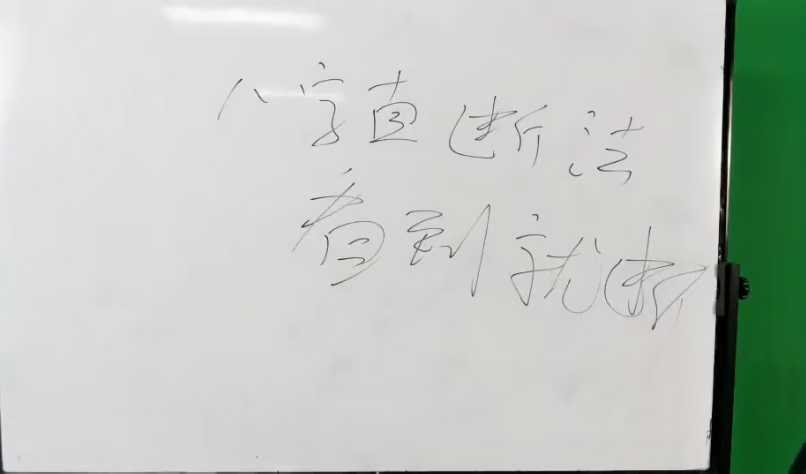 八字直断法
看到就断